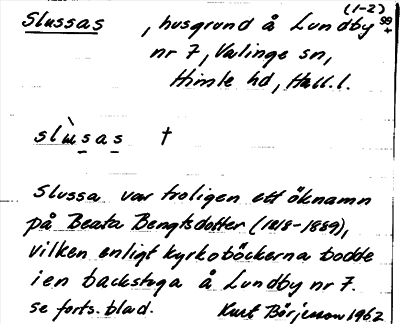 (1-2)
Slussas, husgrund å Lundby 99
nr 7, Valinge sn,
Himle hd, Hall.l.
slùsas †
Slussa var troligen ett öknamn
på Beata Bengtsdotter (1818-1889),
vilken enligt kyrkoböckerna bodde
i en backstuga å Lundby nr 7.
se forts. blad. Kurt Börjesson 1962